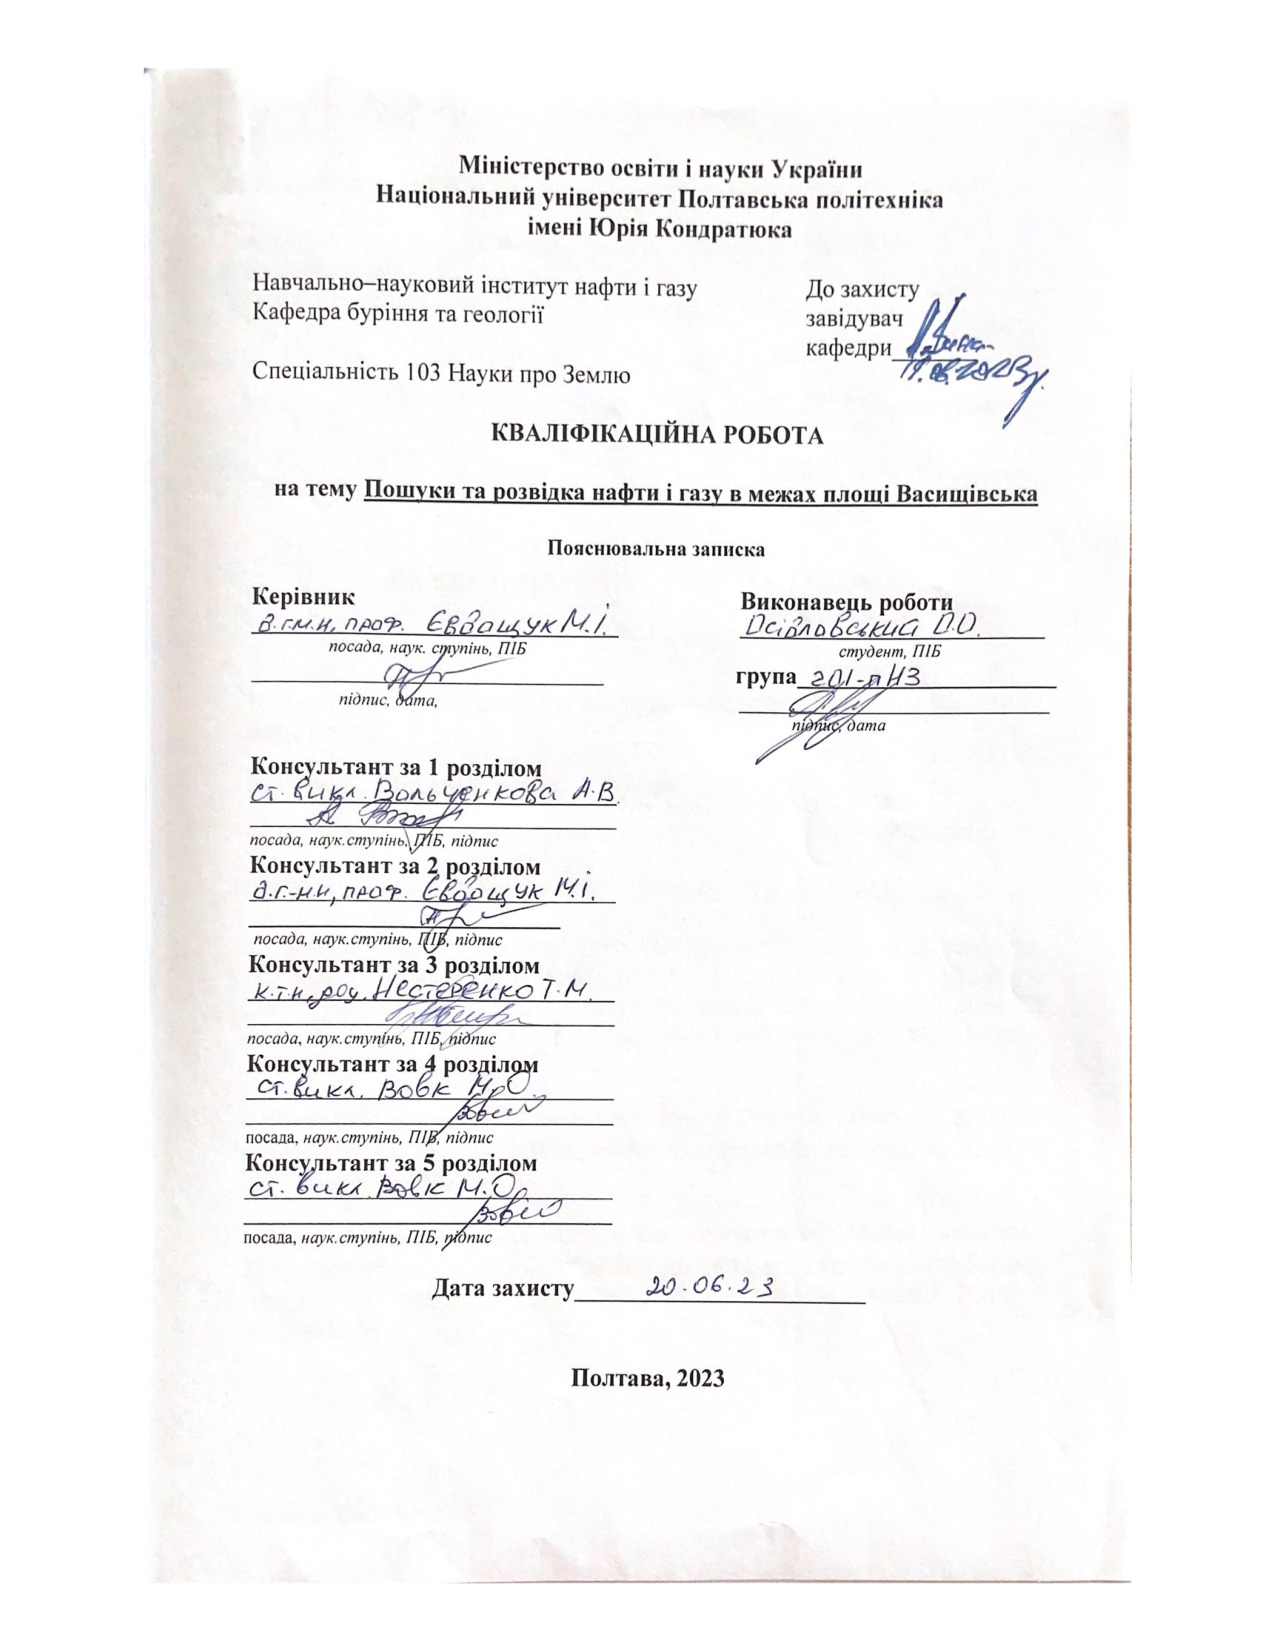 Міністерство освіти і науки України
Національний університет Полтавська політехніка
імені Юрія Кондратюка
Навчально–науковий інститут нафти і газу
Кафедра буріння та геології
Спеціальність 103 Науки про Землю
До захисту
завідувач
кафедри
19.06.2023р.
КВАЛІФІКАЦІЙНА РОБОТА
на тему Пошуки та розвідка нафти і газу в межах площі Васищівська
Пояснювальна записка
Керівник
проф. Євдощук М.І.
посада, наук. ступінь, ПІБ
підпис, дата,
Виконавець роботи
О.О.
студент, ПІБ
група 201-пНЗ
підпис, дата
Консультант за 1 розділом
ст. викл. Вольченкова А.В.
посада, наук.ступінь, ПІБ, підпис
Консультант за 2 розділом
д.г.-м.н, проф. Євдощук М.І.
посада, наук.ступінь, ПІБ, підпис
Консультант за 3 розділом
к.т.н, доц. Нестеренко Т.М.
посада, наук.ступінь, ПІБ, підпис
Консультант за 4 розділом
ст. викл. Вовк М.О.
посада, наук.ступінь, ПІБ, підпис
Консультант за 5 розділом
ст. викл. Вовк М.О.
посада, наук.ступінь, ПІБ, підпис
Дата захисту 20.06.23
Полтава, 2023